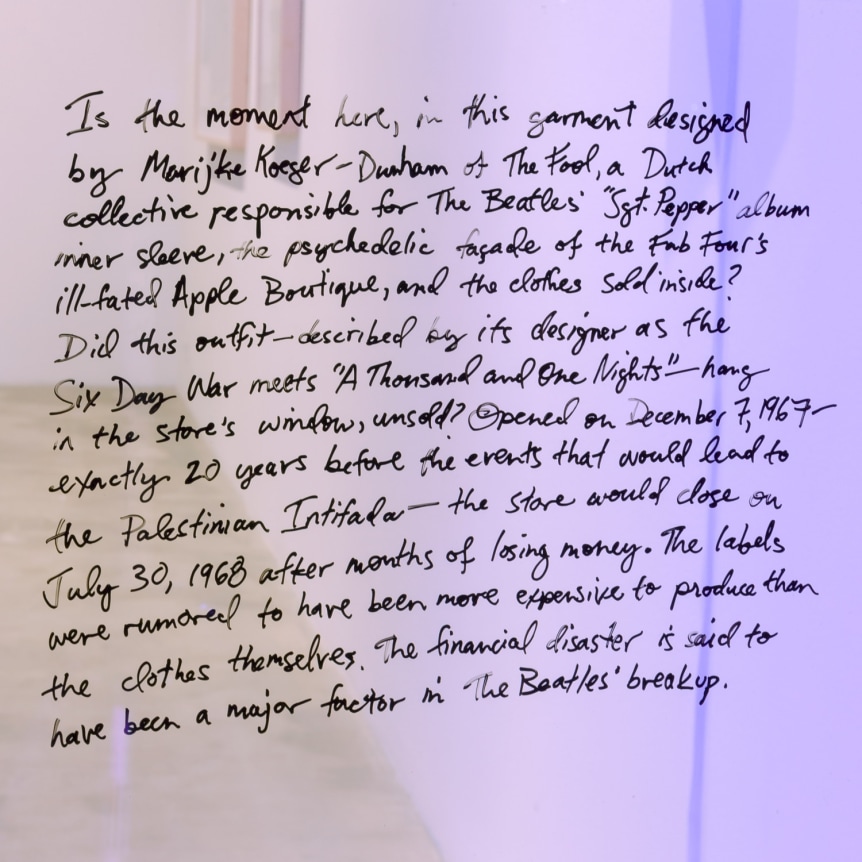 Is the moment here, in this garment designed
by Marijke Koeger-Dunham of The Fool, a Dutch
collective responsible for The Beatles' "Sgt. Pepper" album
inner sleeve, the psychedelic façade of the Fab Four's
ill-fated Apple Boutique, and the clothes sold inside?
Did this outfit—described by its designer as the
Six Day War meets "A Thousand and One Nights"—hang
in the store's window, unsold? Opened on December 7, 1967—
exactly 20 years before the events that would lead to
the Palestinian Intifada—the store would close on
July 30, 1968 after months of losing money. The labels
were rumored to have been more expensive to produce than
the clothes themselves. The financial disaster is said to
have been a major factor in The Beatles' breakup.